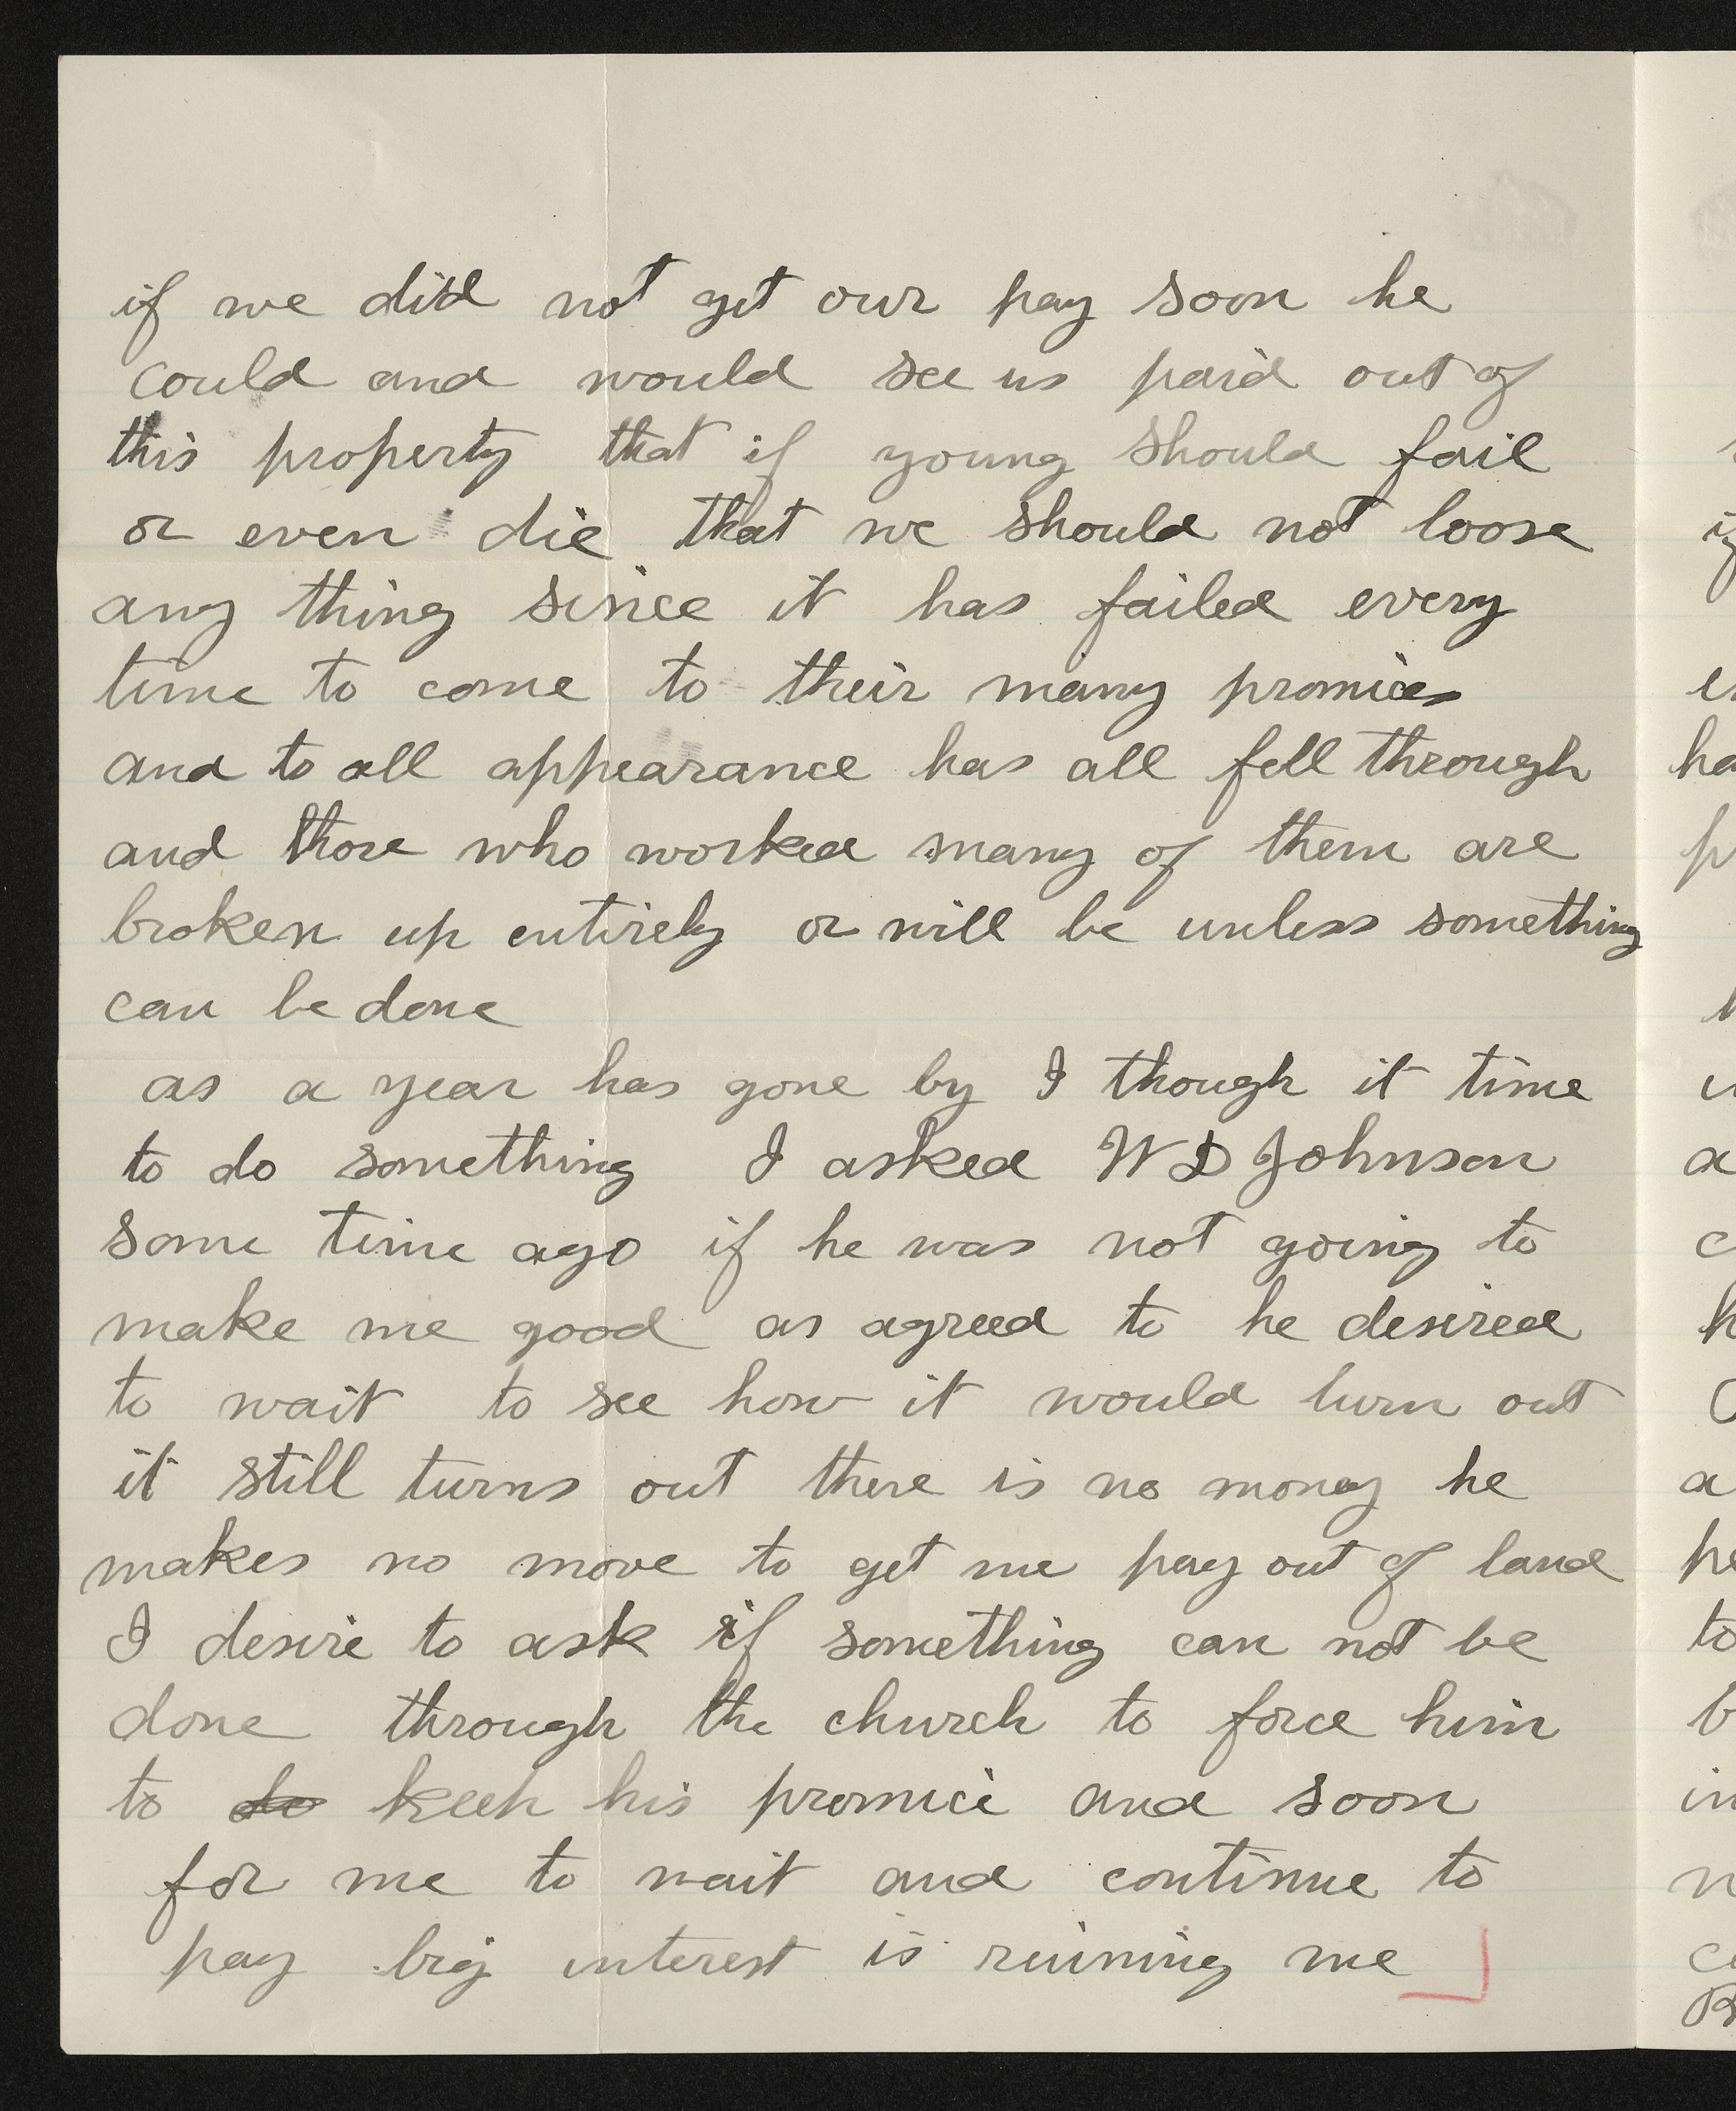 if we did not get our pay soon he
could and would see us paid out of
this property that if young should fail
or even die that we should not loose
any thing since it has failed every
time to come to their many promices
and to all appearance has all fell through
and those who worked many of them are
broken up entirely or will be unless something
can be done
as a year has gone by I though it time
to do something I asked W D Johnson
some time ago if he was not going to
make me good as agreed to he desired
to wait to see how it would turn out
it still turns out there is no money he
makes no move to get me pay out of land
I desire to ask if something can not be
done through the church to force him
to do keep his promice and soon
for me to wait and continue to
pay big interest is ruining me